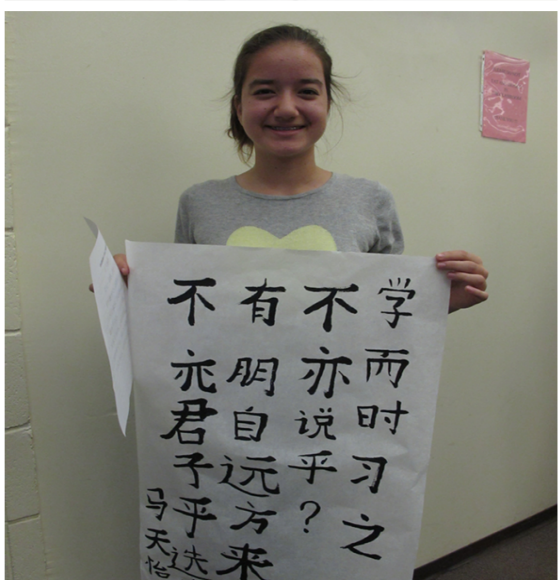 学而时习之
不亦说乎？
有朋自远方来
不亦君子乎
马天怡